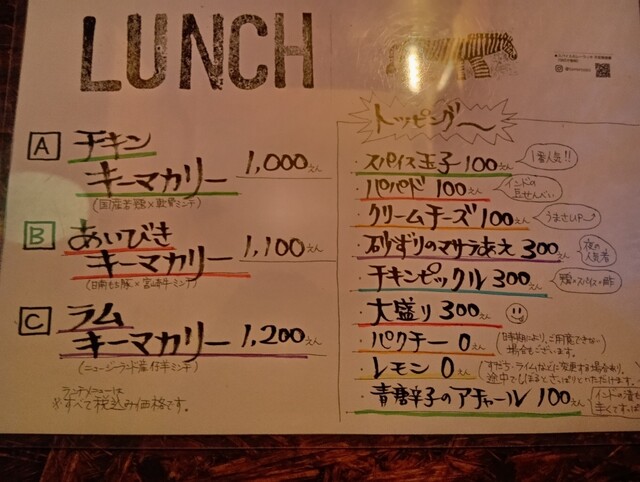 LUNCH
A チキン
キーマカリー 1,000えん
(国産若鶏×軟骨ミンチ)
B あいびき
キーマカリー 1,100えん
(日南もち豚×宮崎牛ミンチ)
C ラム
キーマカリー 1,200えん
(ニュージーランド産仔羊ミンチ)
ランチメニューは
※すべて税込み価格です。
トッピング〜
・スパイス玉子 100えん 1番人気!!
・パパド 100えん インドの
豆せんべい
・クリームチーズ 100えん うまさUP
・砂ずりのマサラあえ 300えん 夜の
人気者
・チキンピックル 300えん 鶏×スパイス×酢
・大盛り 300えん
・パクチー 0えん (日時期により、ご用意できない
場合もございます。)
・レモン 0えん (すだち・ライムなどに変更する場合あり。
途中でしぼるとさっぱりといただけます。)
・青唐辛子のアチャール 100えん インドの漬も
辛くてすっぱ